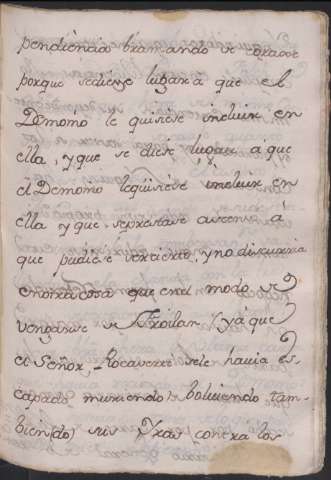 pendiencia bramando de corage
porque sediese lugar a que el
Demonio le quisiese incluir en
ella, y que se diese lugar a que
el Demonio lequisiese incluir en
ella y que seprestase asenso á
que pudiese ser cierto, y no discurria
enotra cosa que en el modo de
vengarse de Froilan (ya que
el Señor, Rocaverti sele havia es-
capado muriendo) bolviendo tam-
bien(do) sus Yras contra los